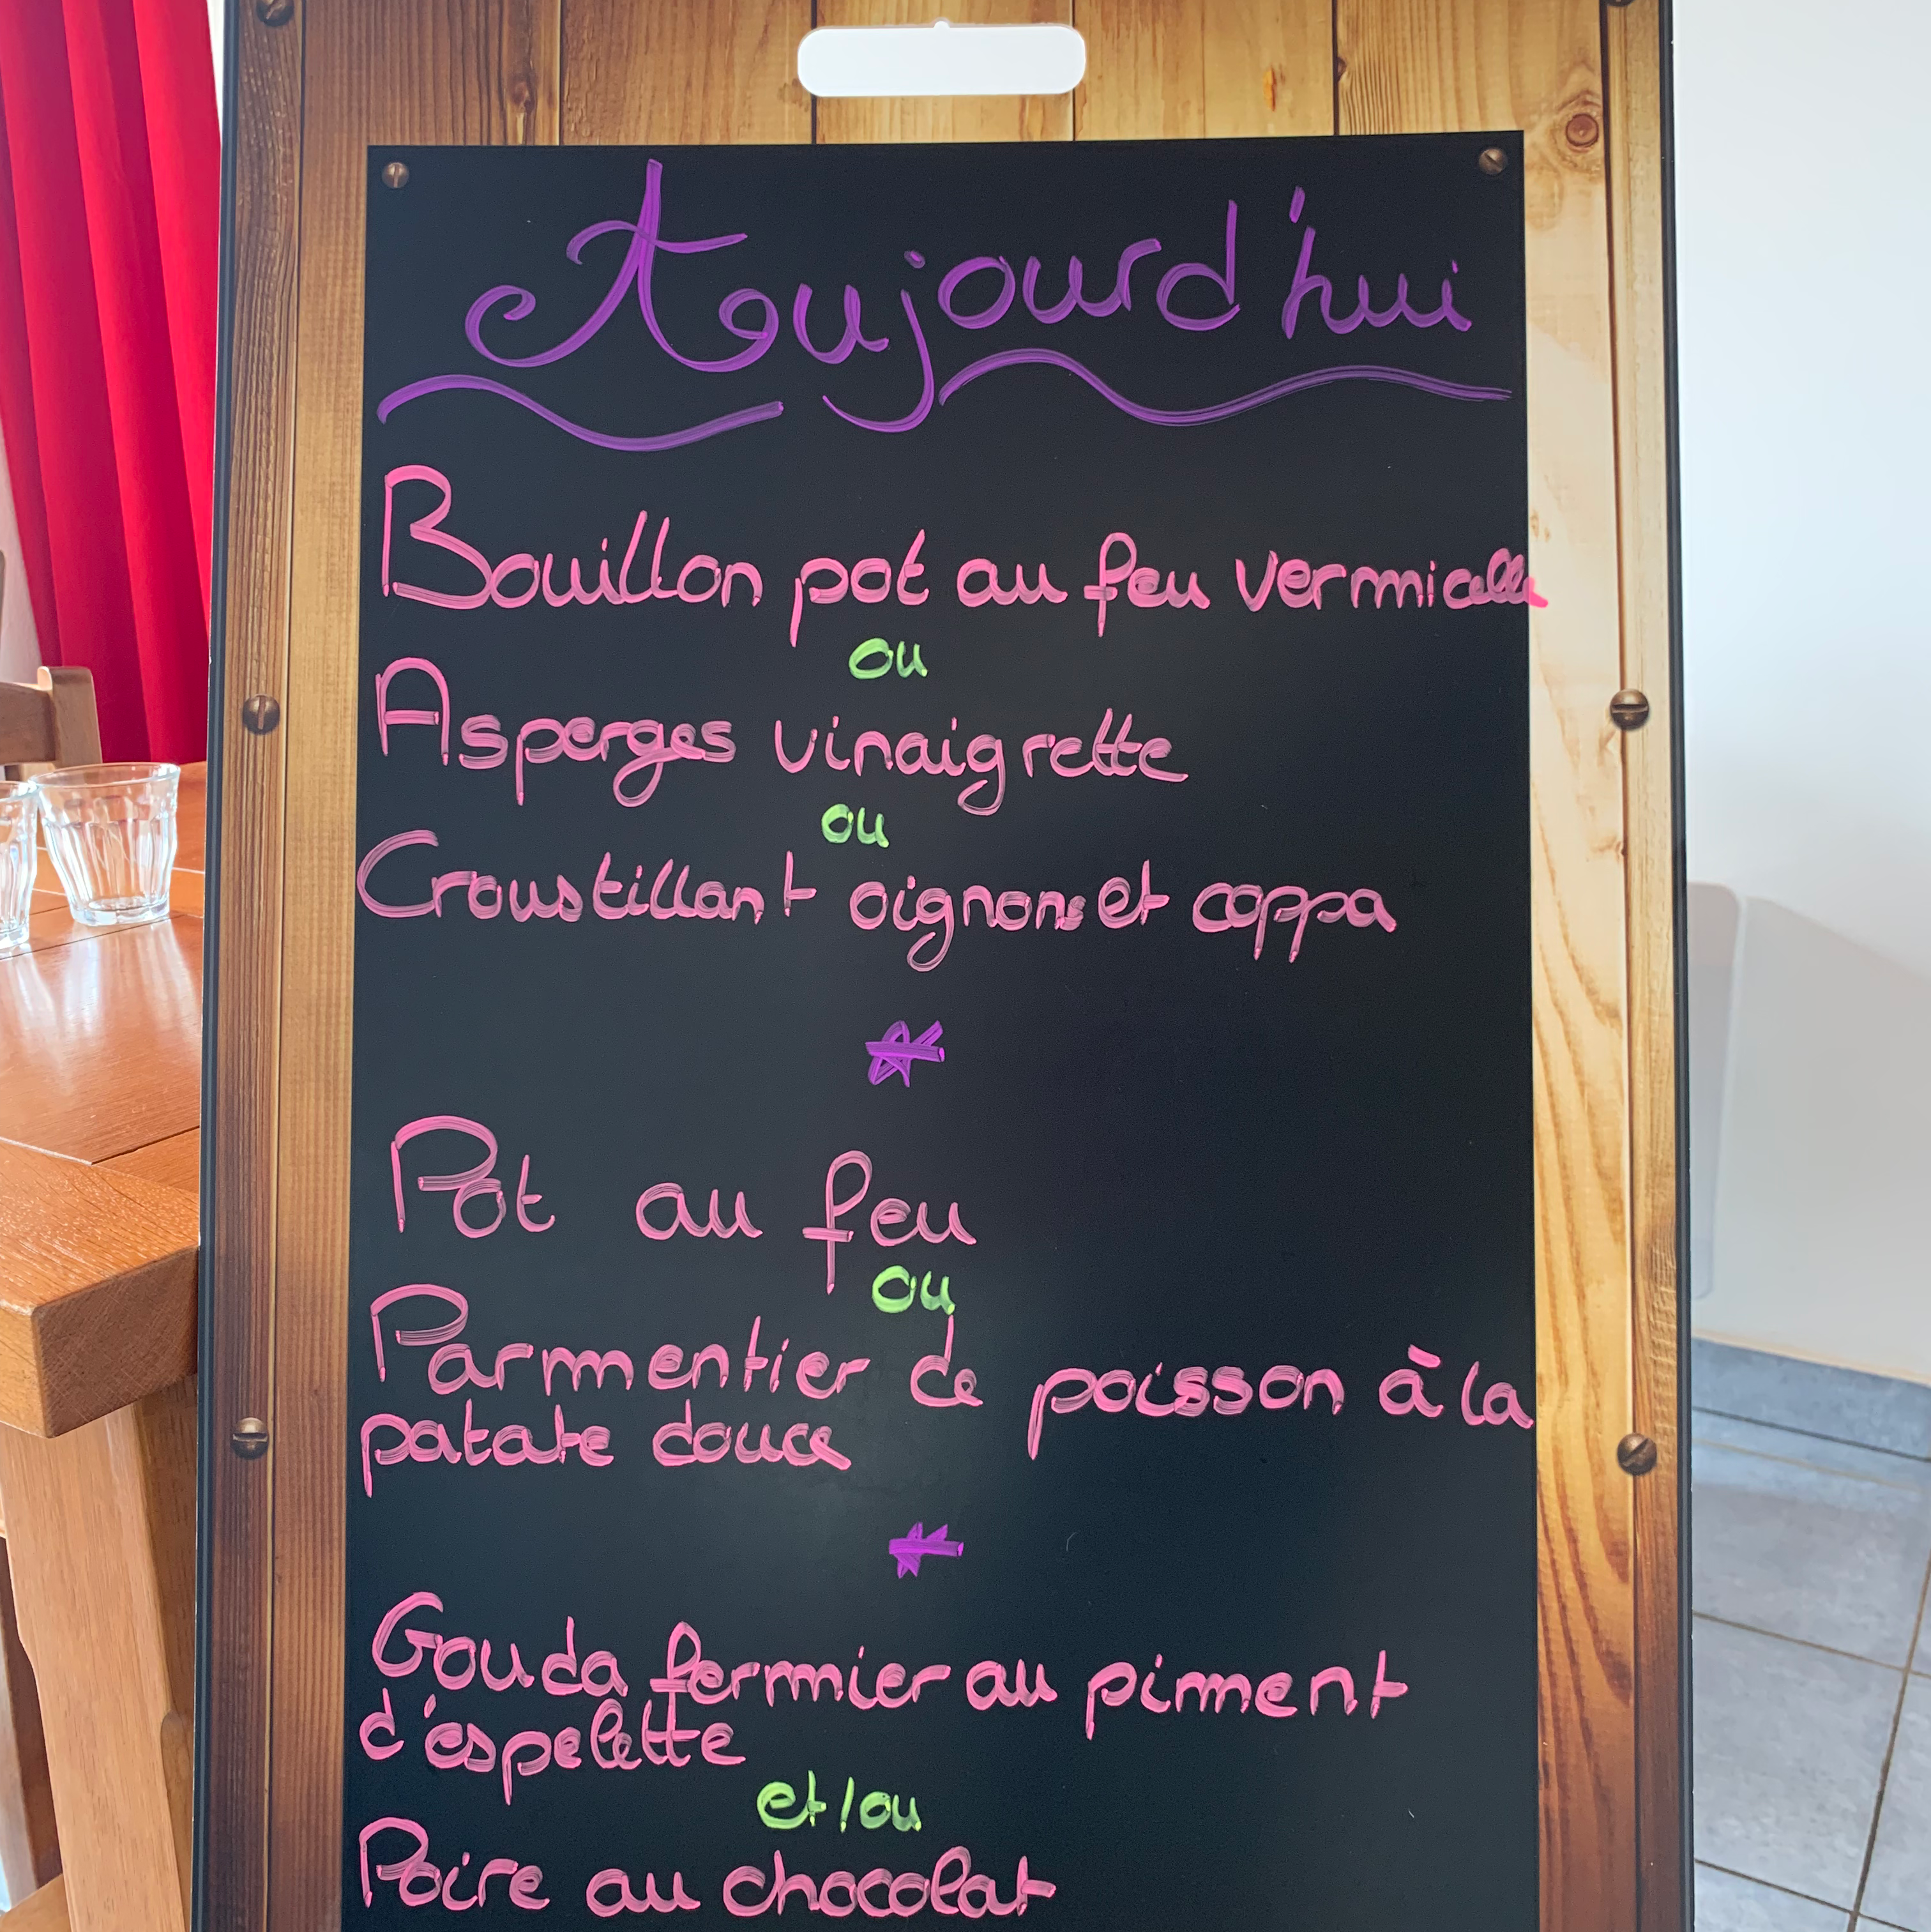 Aujourd'hui
Bouillon pot au feu vermicelle
ou
Asperges vinaigrette
ou
Croustillant oignons et coppa
Pot au feu
ou
Parmentier de poisson à la
patate douce
Gouda fermier au piment
d'espelette
et/ou
Poire au chocolat